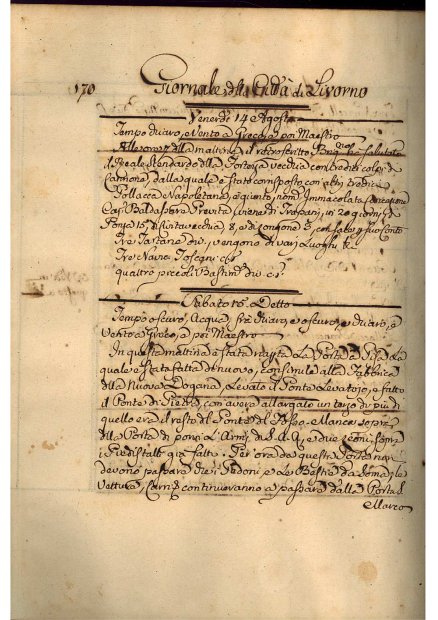 170 Giornale della Città di Livorno
Venerdì 14 Agosto
Tempo chiaro, e Vento a Greco, e poi Maestro
della mattina il retroscritto salutato
il Reale Stendardo della Fortezza Vecchia con tredici colpi di
Cannone, dalla quale è stato corrisposto con altri tredici
Pollacca Napoletana, è giunto, nom. Immacolata Concezione
Cap. Baldassare viene di Trapani, in 20 giorni, di
Ponza 15, di Civitavecchia 8, e di con sale, per suo Conto
Tre Tartane div. vengono di varj Luoghi &c.
Tre Navic. Toscani c.s.
quattro piccoli Bastim. div. c.s.
Sabato 15 Detto
Tempo oscuro, Acqua, fra chiaro, e oscuro, e chiaro, e
Vento a Greco, e poi Maestro
In questa mattina è stata riaperta La Porta a Pisa, La
quale è stata fatta di nuovo, consimile alla Fabbrica
della Nuova Dogana, Levato il Ponte Levatojo, e fatto
il Ponte di Pietra, con avere allargato un terzo di più di
quello era il resto del Ponte del Fosso. Manca sopra
alla Porta di porvi L'Armi di S. A. R. e due Leoni, sopra
i Piedistalli già fatti. Per ora da questa Porta non vi
devono passare che i Pedoni, e Le Bestie da Soma, le
Vetture, e Carri continuovanno a passare dalla Porta S.
Marco